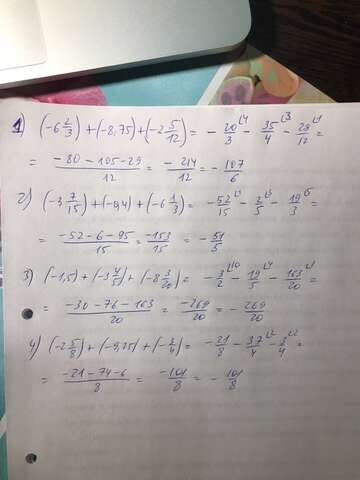 1) (-6 2/3) + (-8,75) + (-2 5/12) = - 20/3 - 35/4 - 29/12 =
= (-80 - 105 - 29)/12 = - 214/12 = - 107/6
2) (-3 7/15) + (-0,4) + (-6 1/3) = - 52/15 - 2/5 - 19/3 =
= (-52 - 6 - 95)/15 = -153/15 = - 51/5
3) (-1,5) + (-3 4/5) + (-8 3/20) = - 3/2 - 19/5 - 163/20 =
= (-30 - 76 - 163)/20 = -269/20 = - 269/20
4) (-2 5/8) + (-9,25) + (- 3/4) = - 21/8 - 37/4 - 3/4 =
= (-21 - 74 - 6)/8 = -101/8 = - 101/8